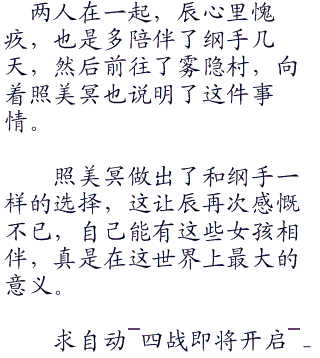 两人在一起，辰心里愧
疚，也是多陪伴了纲手几
天，然后前往了雾隐村，向
着照美冥也说明了这件事
情。
照美冥做出了和纲手一
样的选择，这让辰再次感慨
不已，自己能有这些女孩相
伴，真是在这世界上最大的
意义。
求自动‾四战即将开启‾_